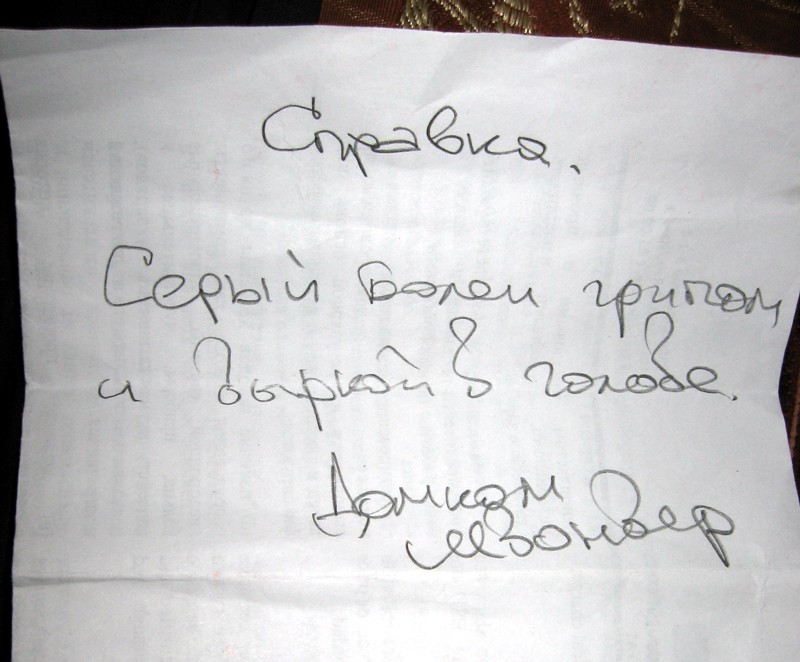 Справка.
Серый болен грипом
и дыркой в голове.
Домком
Швондер